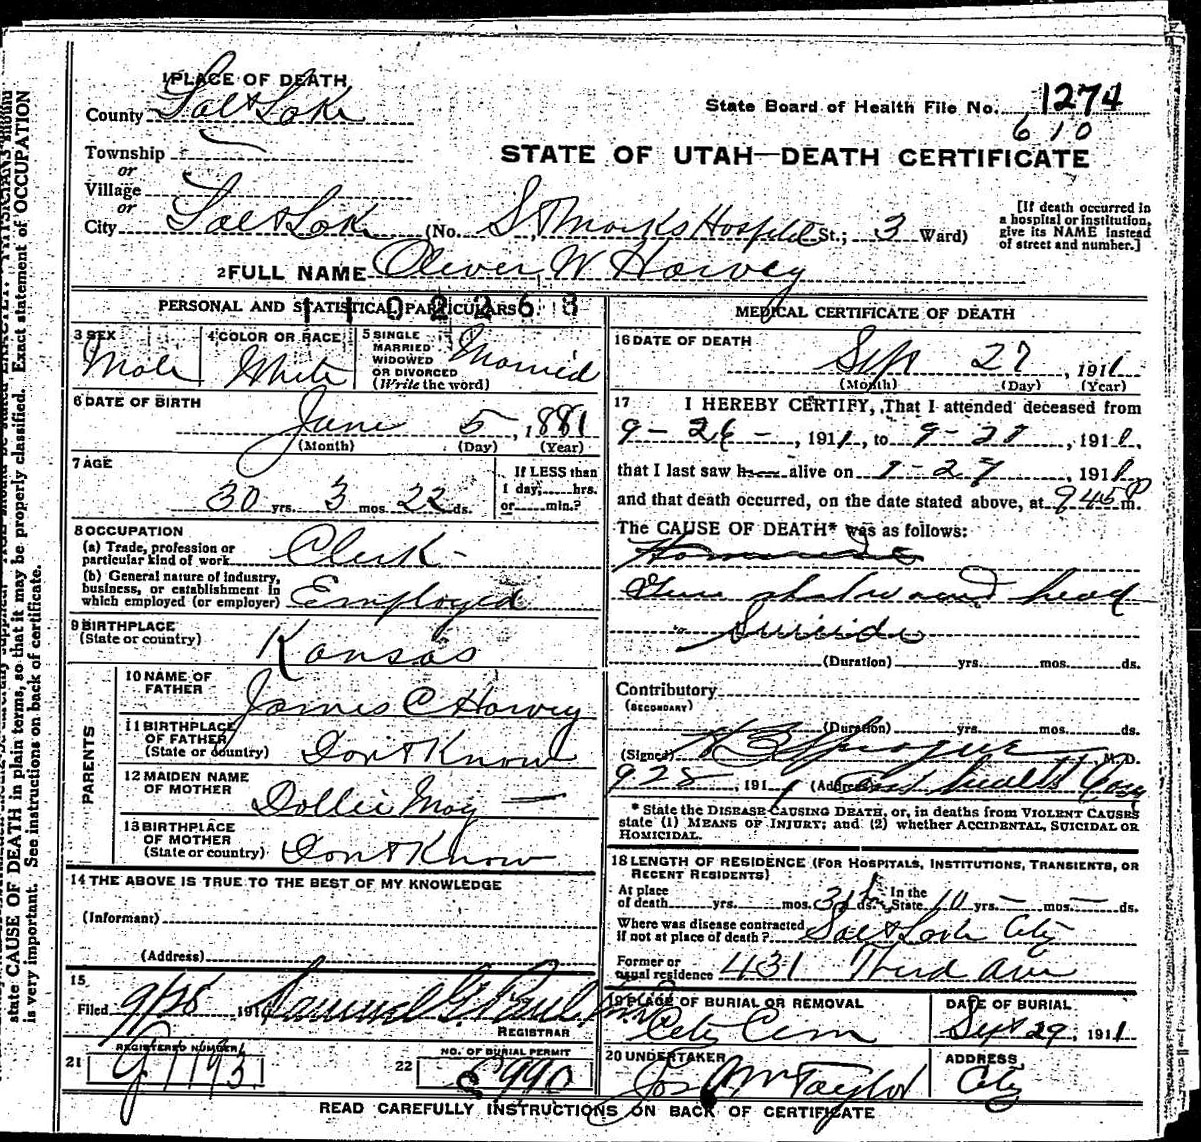 1 PLACE OF DEATH
County Salt Lake
State Board of Health File No. 1274
610
Township
or
Village
or
STATE OF UTAH—DEATH CERTIFICATE
City Salt Lake (No. St Marks Hospital St.; 3 Ward)
[If death occurred in
a hospital or institution,
give its NAME instead
of street and number.]
2 FULL NAME Oliver W Harvey
PERSONAL AND STATISTICAL PARTICULARS
1102263
3 SEX
Male
4 COLOR OR RACE
White
5 SINGLE
MARRIED
WIDOWED
OR DIVORCED
(Write the word)
Married
6 DATE OF BIRTH
June 5, 1881
(Month) (Day) (Year)
7 AGE
30 yrs. 3 mos. 22 ds.
If LESS than
1 day, hrs.
or min.?
8 OCCUPATION
(a) Trade, profession or
particular kind of work Clerk
(b) General nature of industry,
business, or establishment in
which employed (or employer) Employed
9 BIRTHPLACE
(State or country) Kansas
PARENTS
10 NAME OF
FATHER James C Harvey
11 BIRTHPLACE
OF FATHER
(State or country) Dont Know
12 MAIDEN NAME
OF MOTHER Dollie May
13 BIRTHPLACE
OF MOTHER
(State or country) Dont Know
14 THE ABOVE IS TRUE TO THE BEST OF MY KNOWLEDGE
(Informant)
(Address)
15
Filed 9/28 191 Samuel G. Paul
REGISTRAR
21
REGISTERED NUMBER
G 1193
22
NO. OF BURIAL PERMIT
990
MEDICAL CERTIFICATE OF DEATH
16 DATE OF DEATH
Sept 27, 1911
(Month) (Day) (Year)
17 I HEREBY CERTIFY, That I attended deceased from
9-26-, 1911, to 9-27, 1911,
that I last saw h alive on 9-27, 1911,
and that death occurred, on the date stated above, at 945 P m.
The CAUSE OF DEATH* was as follows:
Gun shot wound head
Suicide
(Duration) yrs. mos. ds.
Contributory
(SECONDARY)
(Duration) yrs. mos. ds.
(Signed) Sprague M. D.
928, 191 (Address)
* State the DISEASE CAUSING DEATH, or, in deaths from VIOLENT CAUSES
state (1) MEANS OF INJURY; and (2) whether ACCIDENTAL, SUICIDAL OR
HOMICIDAL.
18 LENGTH OF RESIDENCE (FOR HOSPITALS, INSTITUTIONS, TRANSIENTS, OR
RECENT RESIDENTS)
At place
of death yrs. mos. ds. In the
State 10 yrs. mos. ds.
Where was disease contracted
if not at place of death? Salt Lake City
Former or
usual residence 431 Third Ave
19 PLACE OF BURIAL OR REMOVAL
City Cem
DATE OF BURIAL
Sept 29, 1911
20 UNDERTAKER
Jos Wm Taylor
ADDRESS
City
READ CAREFULLY INSTRUCTIONS ON BACK OF CERTIFICATE
state CAUSE OF DEATH in plain terms, so that it may be properly classified. Exact statement of OCCUPATION
is very important. See instructions on back of certificate.